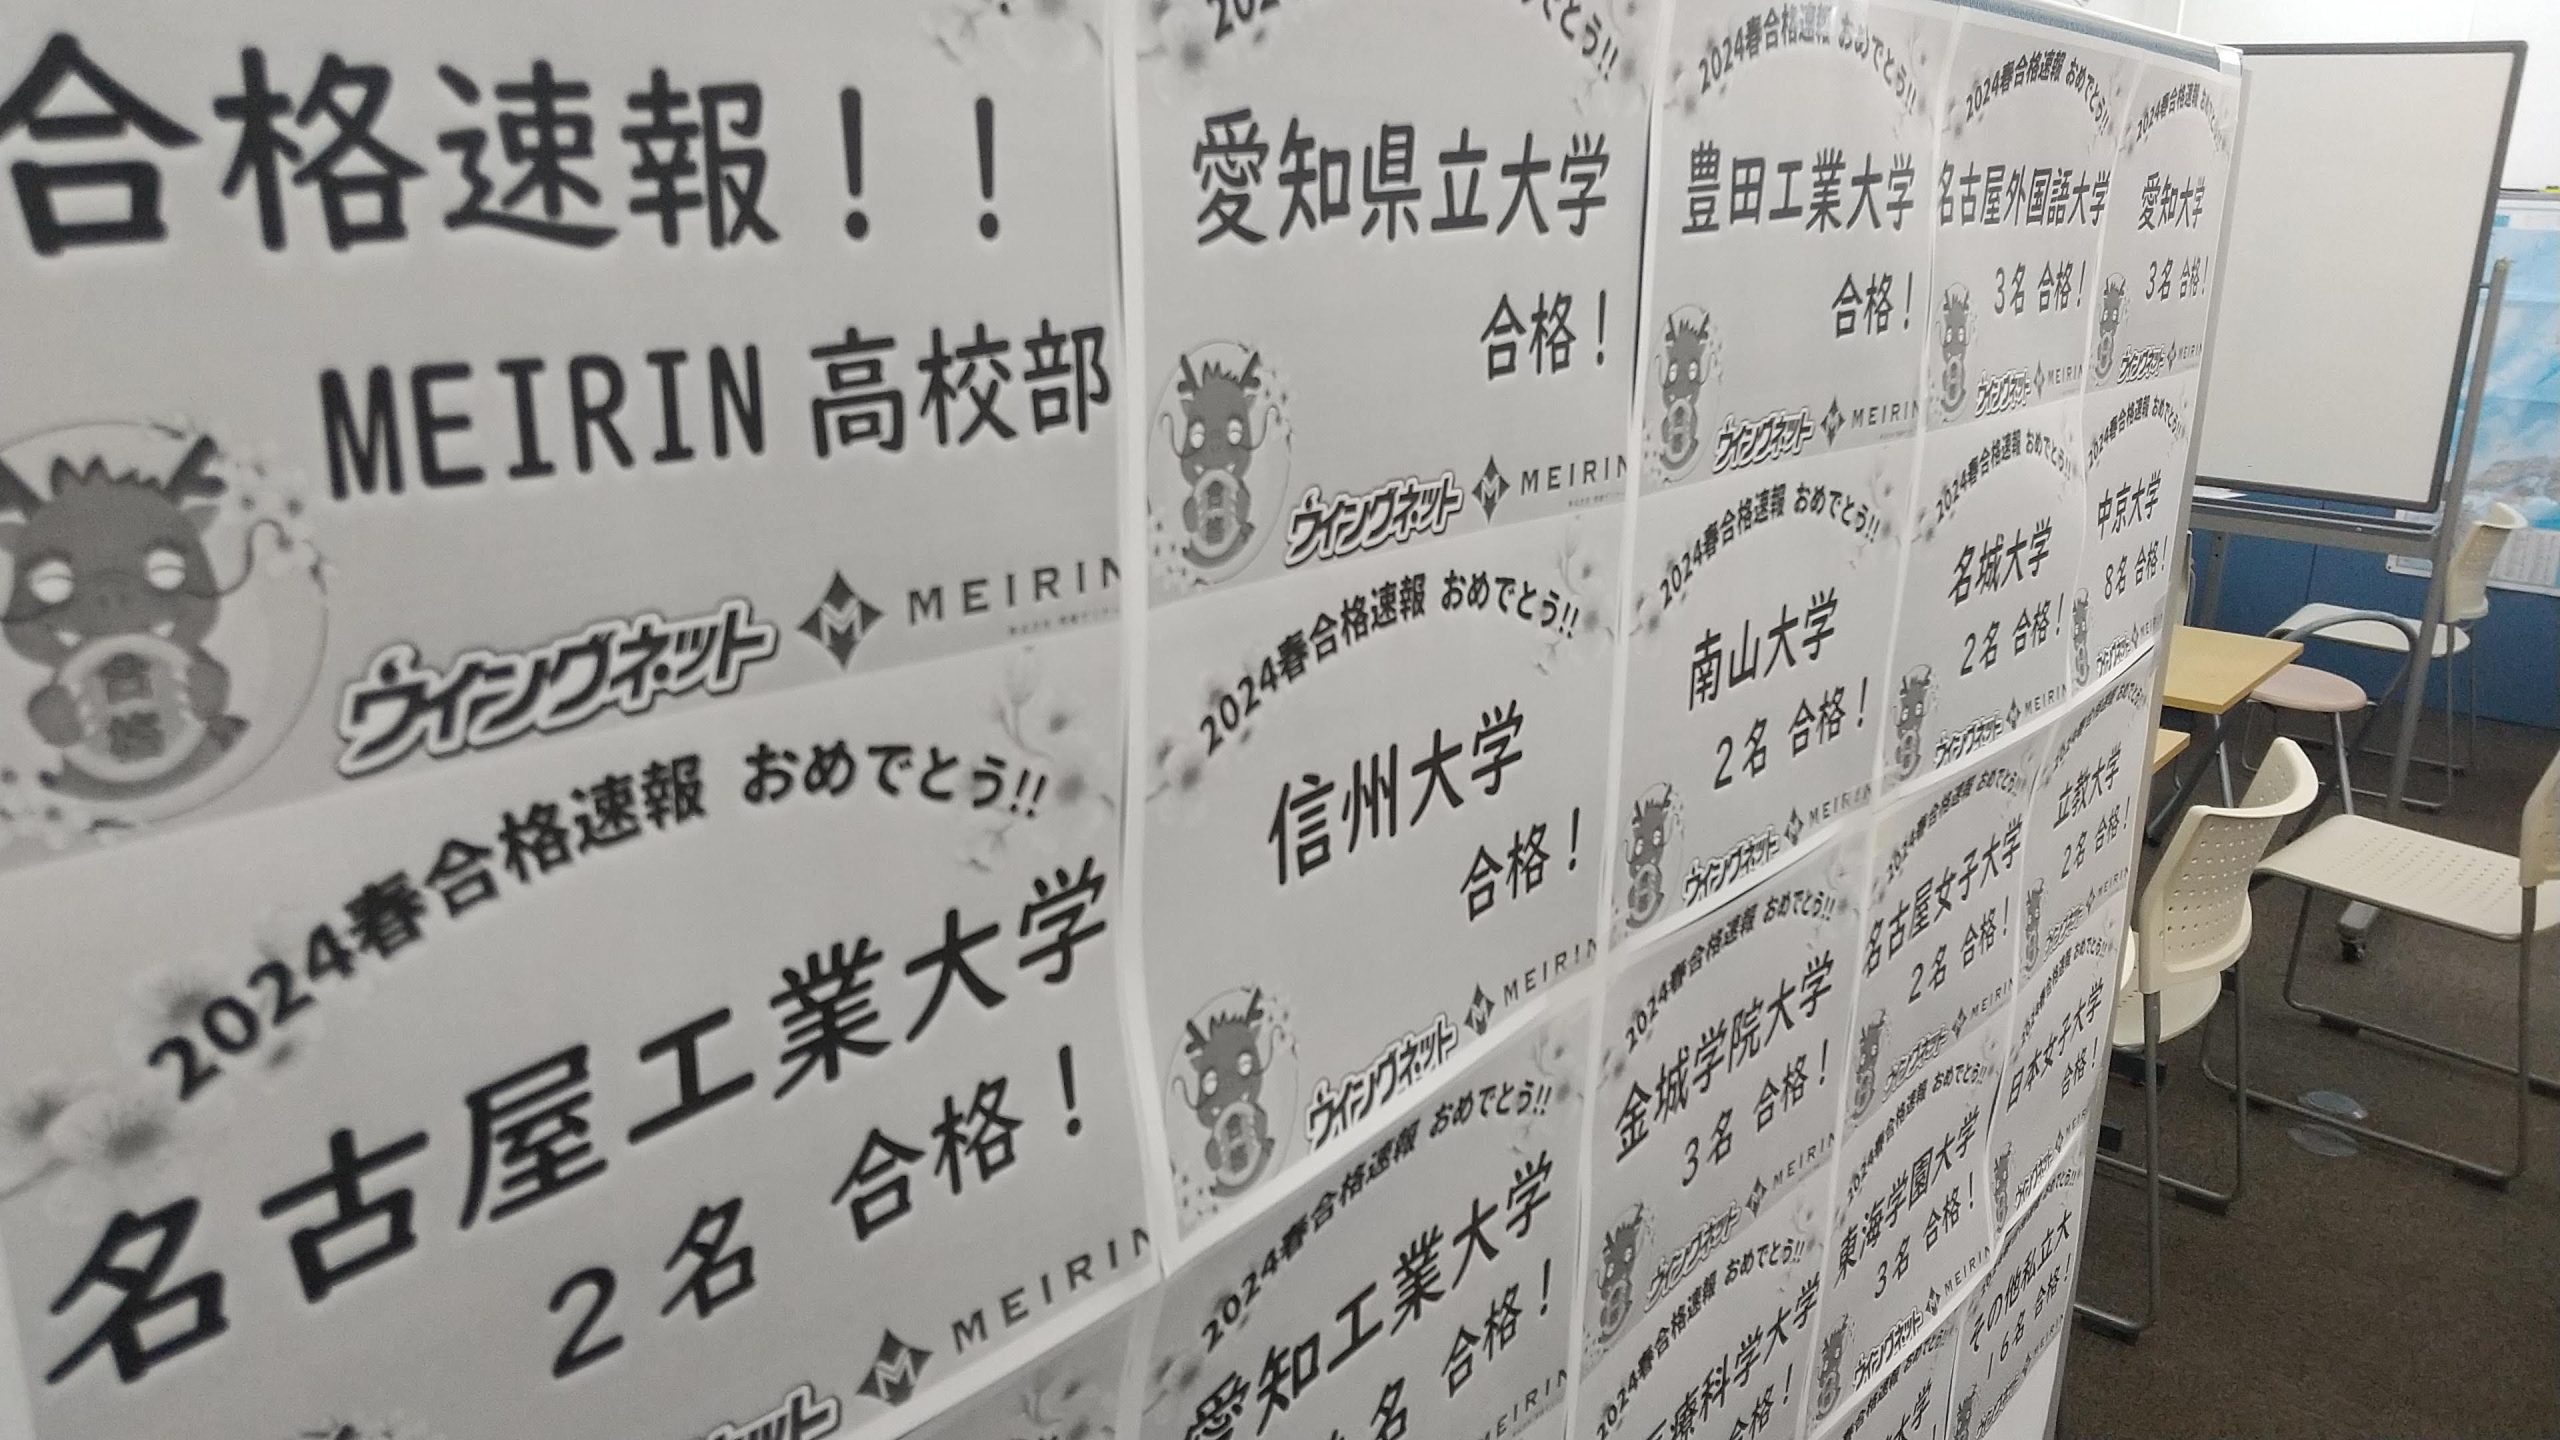 合格速報！！
MEIRIN 高校部
合格
ウイングネット MEIRIN
2024春合格速報 おめでとう!!
名古屋工業大学
2名 合格！
MEIRIN
とう!!
愛知県立大学
合格！
合格
ウイングネット MEIRIN
2024春合格速報 おめでとう!!
信州大学
合格！
合格
ウイングネット MEIRIN
2024春合格速報 おめでとう!!
愛知工業大学
名 合格！
2024春合格速報 おめでとう!!
豊田工業大学
合格！
合格
ウイングネット MEIRIN
2024春合格速報 おめでとう!!
南山大学
2名 合格！
ウイングネット MEIRIN
2024春合格速報 おめでとう!!
金城学院大学
3名 合格！
ウイングネット MEIRIN
2024春合格速報 おめでとう!!
医療科学大学
合格！
2024春合格速報 おめでとう!!
名古屋外国語大学
3名 合格！
ウイングネット MEIRIN
2024春合格速報 おめでとう!!
名城大学
2名 合格！
ウイングネット MEIRIN
2024春合格速報 おめでとう!!
名古屋女子大学
2名 合格！
ウイングネット MEIRIN
2024春合格速報 おめでとう!!
東海学園大学
3名 合格！
ウイングネット MEIRIN
2024春合格速報 おめでとう!!
愛知大学
3名 合格！
ウイングネット MEIRIN
2024春合格速報 おめでとう!!
中京大学
8名 合格！
ウイングネット
2024春合格速報 おめでとう!!
立教大学
2名 合格！
ウイングネット MEIRIN
2024春合格速報 おめでとう!!
日本女子大学
合格！
ウイングネット
その他私立大
16名 合格！